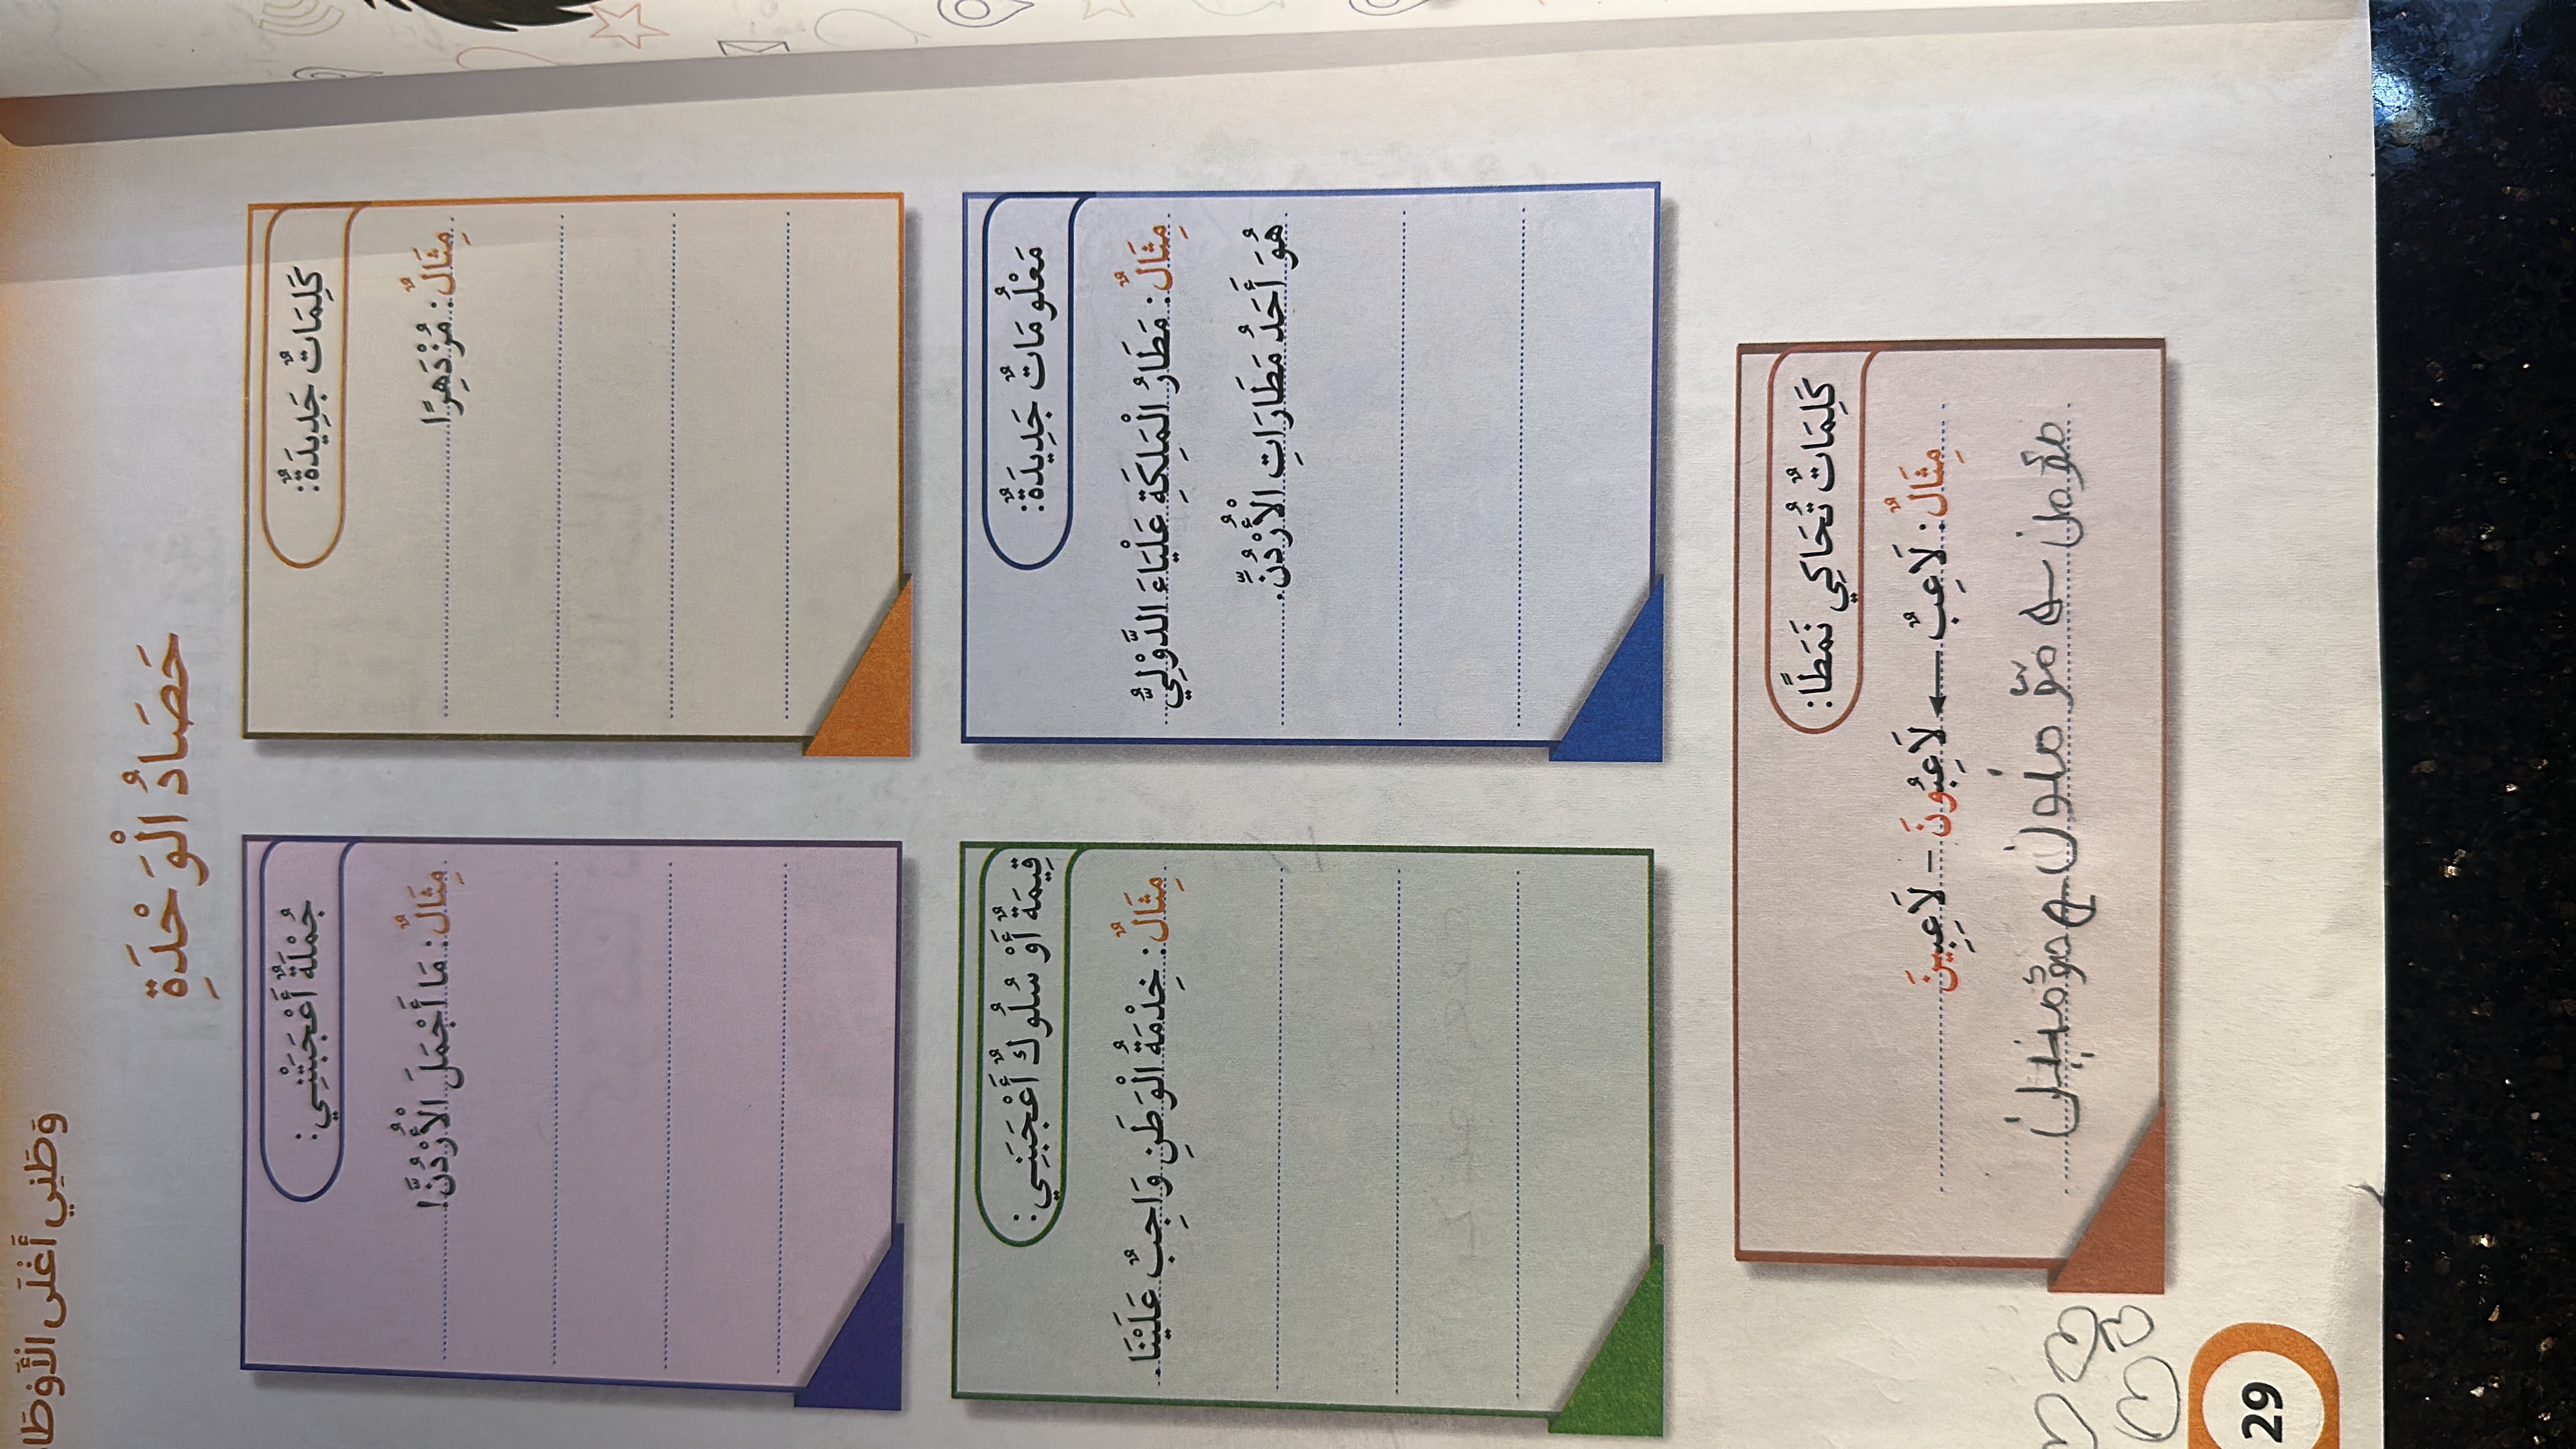 وَطَنِي أَغْلَى الْأَوْطَا
حَصَادُ الْوَحْدَةِ
كَلِمَاتٌ جَدِيدَةٌ:
مِثَالٌ: مُزْدَهِرًا
جُمْلَةٌ أَعْجَبَتْنِي:
مِثَالٌ: مَا أَجْمَلَ الْأُرْدُنَّ!
مَعْلُومَاتٌ جَدِيدَةٌ:
مِثَالٌ: مَطَارُ الْمَلِكَةِ عَلْيَاءَ الدَّوْلِيُّ
هُوَ أَحَدُ مَطَارَاتِ الْأُرْدُنِّ.
قِيمَةٌ أَوْ سُلُوكٌ أَعْجَبَنِي:
مِثَالٌ: خِدْمَةُ الْوَطَنِ وَاجِبٌ عَلَيْنَا.
كَلِمَاتٌ تُحَاكِي نَمَطًا:
مِثَالٌ: لَاعِبٌ ← لَاعِبُونَ - لَاعِبِينَ
29